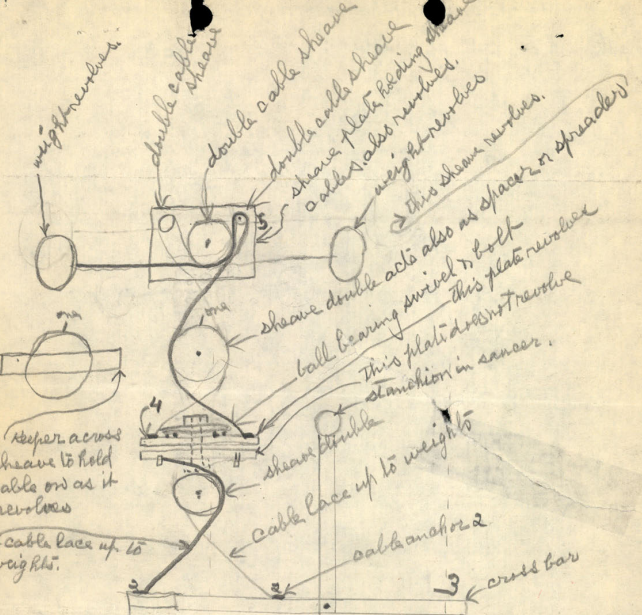 weight revolves.
double cable
sheave
double cable sheave
double cable sheave
sheave plate holding sheave
cables, also revolves.
weight revolves
this sheave revolves.
5
sheave double acts also as spacer or spreader
one
one
ball bearing swivel & bolt
this plate revolves
this plate does not revolve
stanchion in saucer.
4
Keeper across
sheave to hold
cable on as it
revolves
11
sheave double
cable lace up to weights
cable lace up to
weights.
cable anchor 2
2
3
cross bar